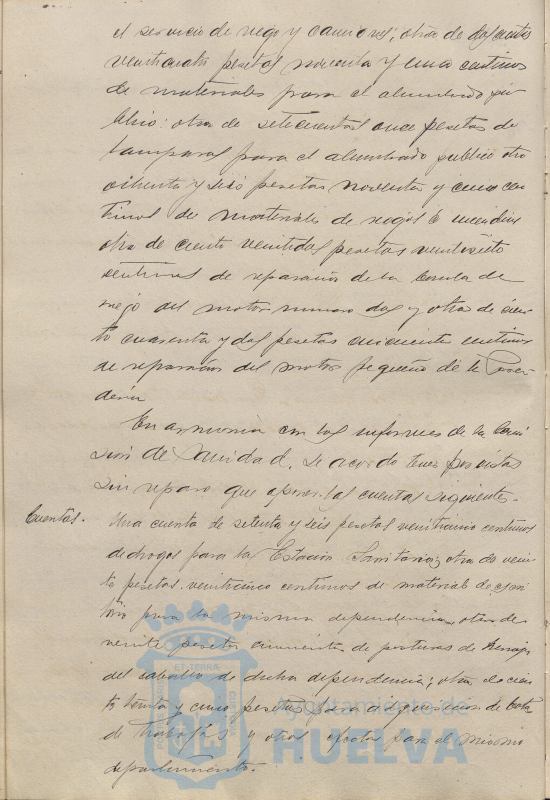 el servicio de riego y camiones; otra de doscientas
veinticuatro pesetas noventa y cinco céntimos
de materiales para el alumbrado pú-
blico: otra de setecientas once pesetas de
lamparas para el alumbrado publico otra
ochenta y seis pesetas noventa y cinco cén-
timos de materiales de riegos é incendios
otra de ciento veintidos pesetas veintisiete
centimos de reparación de la de
riego del motor numero dos y otra de cien-
to cuarenta y dos pesetas cincuenta centimos
de reparación del motor pequeño de la
deria
En armonia con los informes de la Comi-
sión de Sanidad, se acordó tener por vistas
sin reparo que oponer las cuentas siguientes.
Cuentas.
Una cuenta de setenta y seis pesetas veinticinco centimos
de drogas para la Estación Sanitaria; otra de vein-
te pesetas veinticinco centimos de material de escri-
torio para la misma dependencia, otra de
veinte pesetas cincuenta de posturas de herrajes
del caballo de dicha dependencia; otra de cien-
to treinta y cinco pesetas para adquisición de
de trabajos y otros efectos para el mismo
departamento.
ET TERRA
Ayuntamiento de
HUELVA